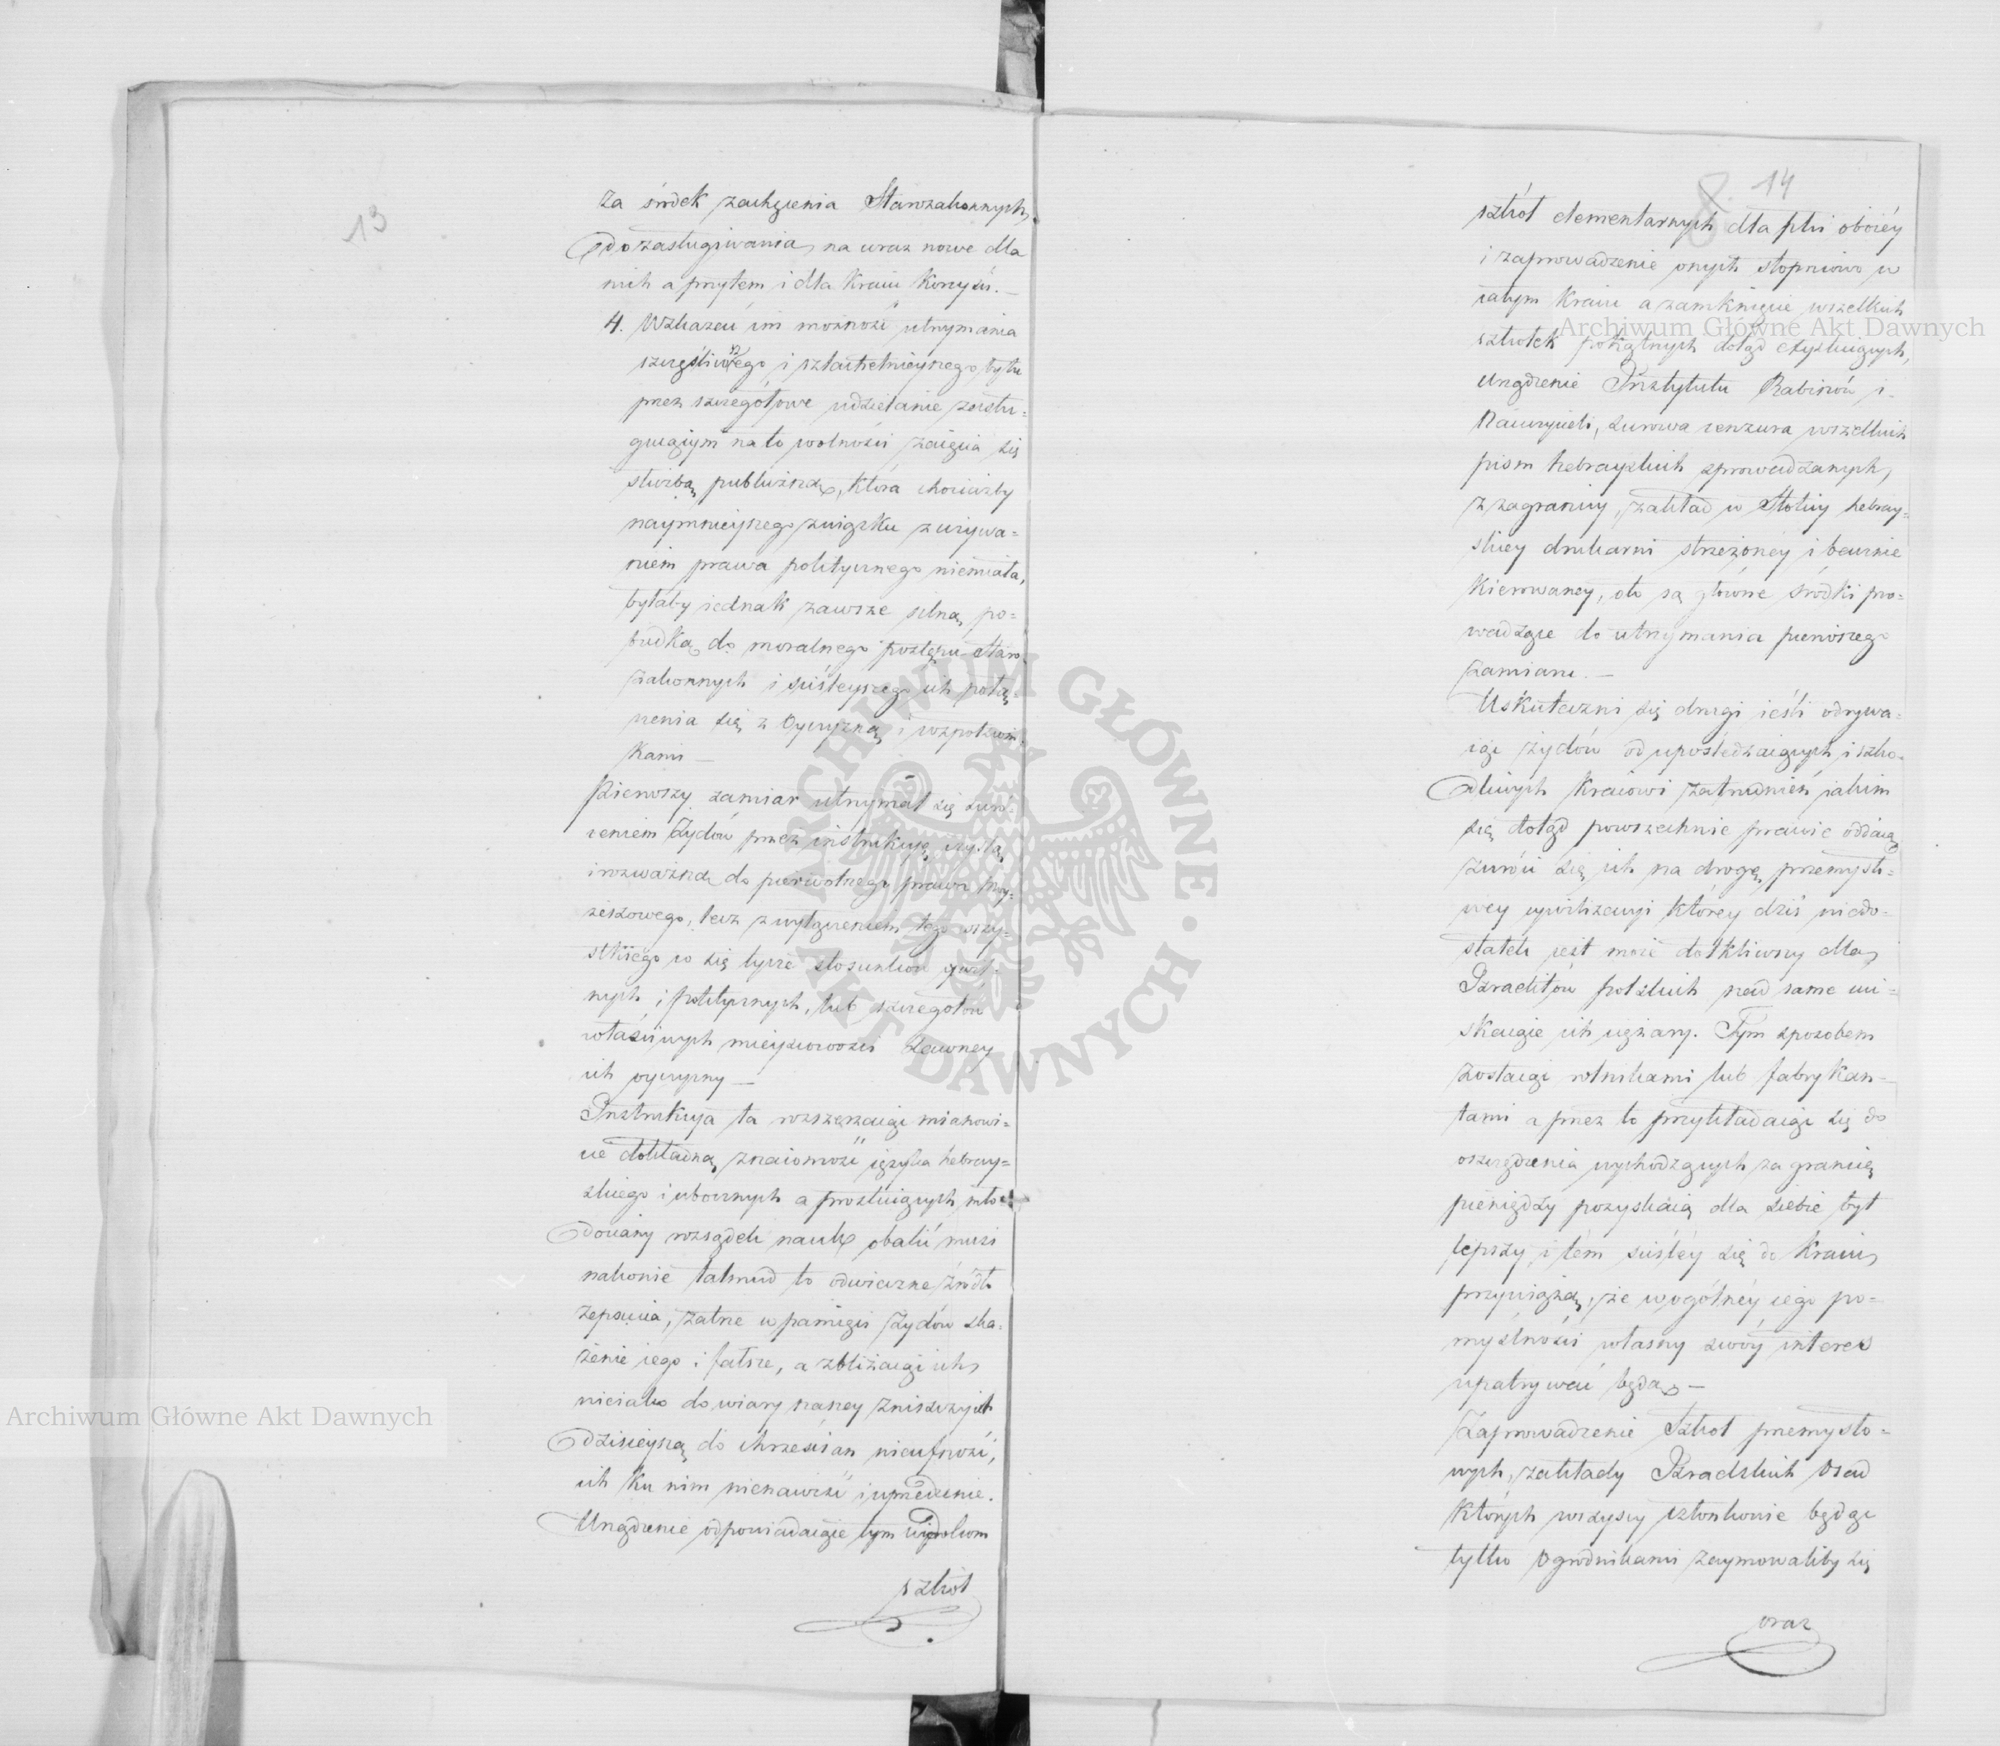 13
za środek zachęcenia Starozakonnych,
do zasługiwania, na coraz nowe dla
nich a przytem i dla Kraiu korzyści. —
4. Wskazać im możność utrzymania
szczęśliwszego i szlachetnieyszego bytu
przez szczegółowe udzielanie zasłu-
guiącym na to wolności zaięcia się
służbą publiczną, która chociażby
naymnieyszego związku z używa-
niem prawa politycznego niemiała,
byłaby iednak zawsze silną po-
budką do moralnego postępu Staro-
zakonnych i ściśleyszego ich połą-
czenia się z Oyczyzną i wspołziom-
kami —
Pierwszy zamiar utrzymał się zwró-
ceniem Żydów przez instrukcyą czystą
i rozważną do pierwotnego prawa Moy-
żeszowego, lecz z wyłączeniem tego wszy-
stkiego co się tycze stosunków cywil-
nych i politycznych, lub szczegółów
właściwych mieyscowości dawney
ich oyczyzny —
Instrukcyą ta rozszerzaiąc mianowi-
cie dokładną znaiomość ięzyka hebray-
skiego i ubocznych a prostuiących mło-
dociany rozsądek nauk, obalić musi
nakonie talmud to odwieczne źródło
zepsucia, zatrze w pamięci Żydów ska-
żenie iego i fałsze, a zbliżaiąc ich
nieiako do wiary naszey zniszczy ich
dzisieyszą do chrześcian nieufność,
ich ku nim nienawiść i uprzedzenie.
Urządzenie odpowiadaiące tym widokom
szkół
8 14
szkół elementarnych dla płci oboiéy
i zaprowadzenie onych stopniowo w
całym Kraiu a zamknięcie wszelkich
szkołek pokątnych dotąd exystuiących,
urządzenie Instytutu Rabinów i
Nauczycieli, surowa cenzura wszelkich
pism hebrayskich sprowadzanych,
z zagranicy, zakład w Stolicy hebray-
skiey drukarni strzeżonéy i bacznie
kierowaney, oto są główne środki pro-
wadzące do utrzymania pierwszego
zamiaru. —
Uskuteczni się drugi ieśli odrywa-
iąc żydów od upośledzaiących i szko-
dliwych Kraiowi zatrudnień iakim
się dotąd powszechnie prawie oddaią
zwróci się ich na drogę przemysło-
wey cywilizacyi któréy dziś niedo-
statek iest może dotkliwszy dla
Izraelitów polskich nad same uci-
skaiące ich ciężary. Tym sposobem
zostaiąc rolnikami lub fabrykan-
tami a przez to przykładaiąc się do
oszczędzenia wychodzących za granicę
pieniędzy pozyskaią dla siebie byt
lepszy i tém ściśléy się do Kraiu
przywiążą, że w ogólnéy iego po-
myślności własny swóy interes
upatrywać będą. —
Zaprowadzenie Szkół przemysło-
wych, zakłady Izraelskich Osad
których wszyscy członkowie będąc
tylko Ogrodnikami zaymowaliby się
oraz
Archiwum Główne Akt Dawnych
Archiwum Główne Akt Dawnych
ARCHIWUM GŁÓWNE · AKT DAWNYCH